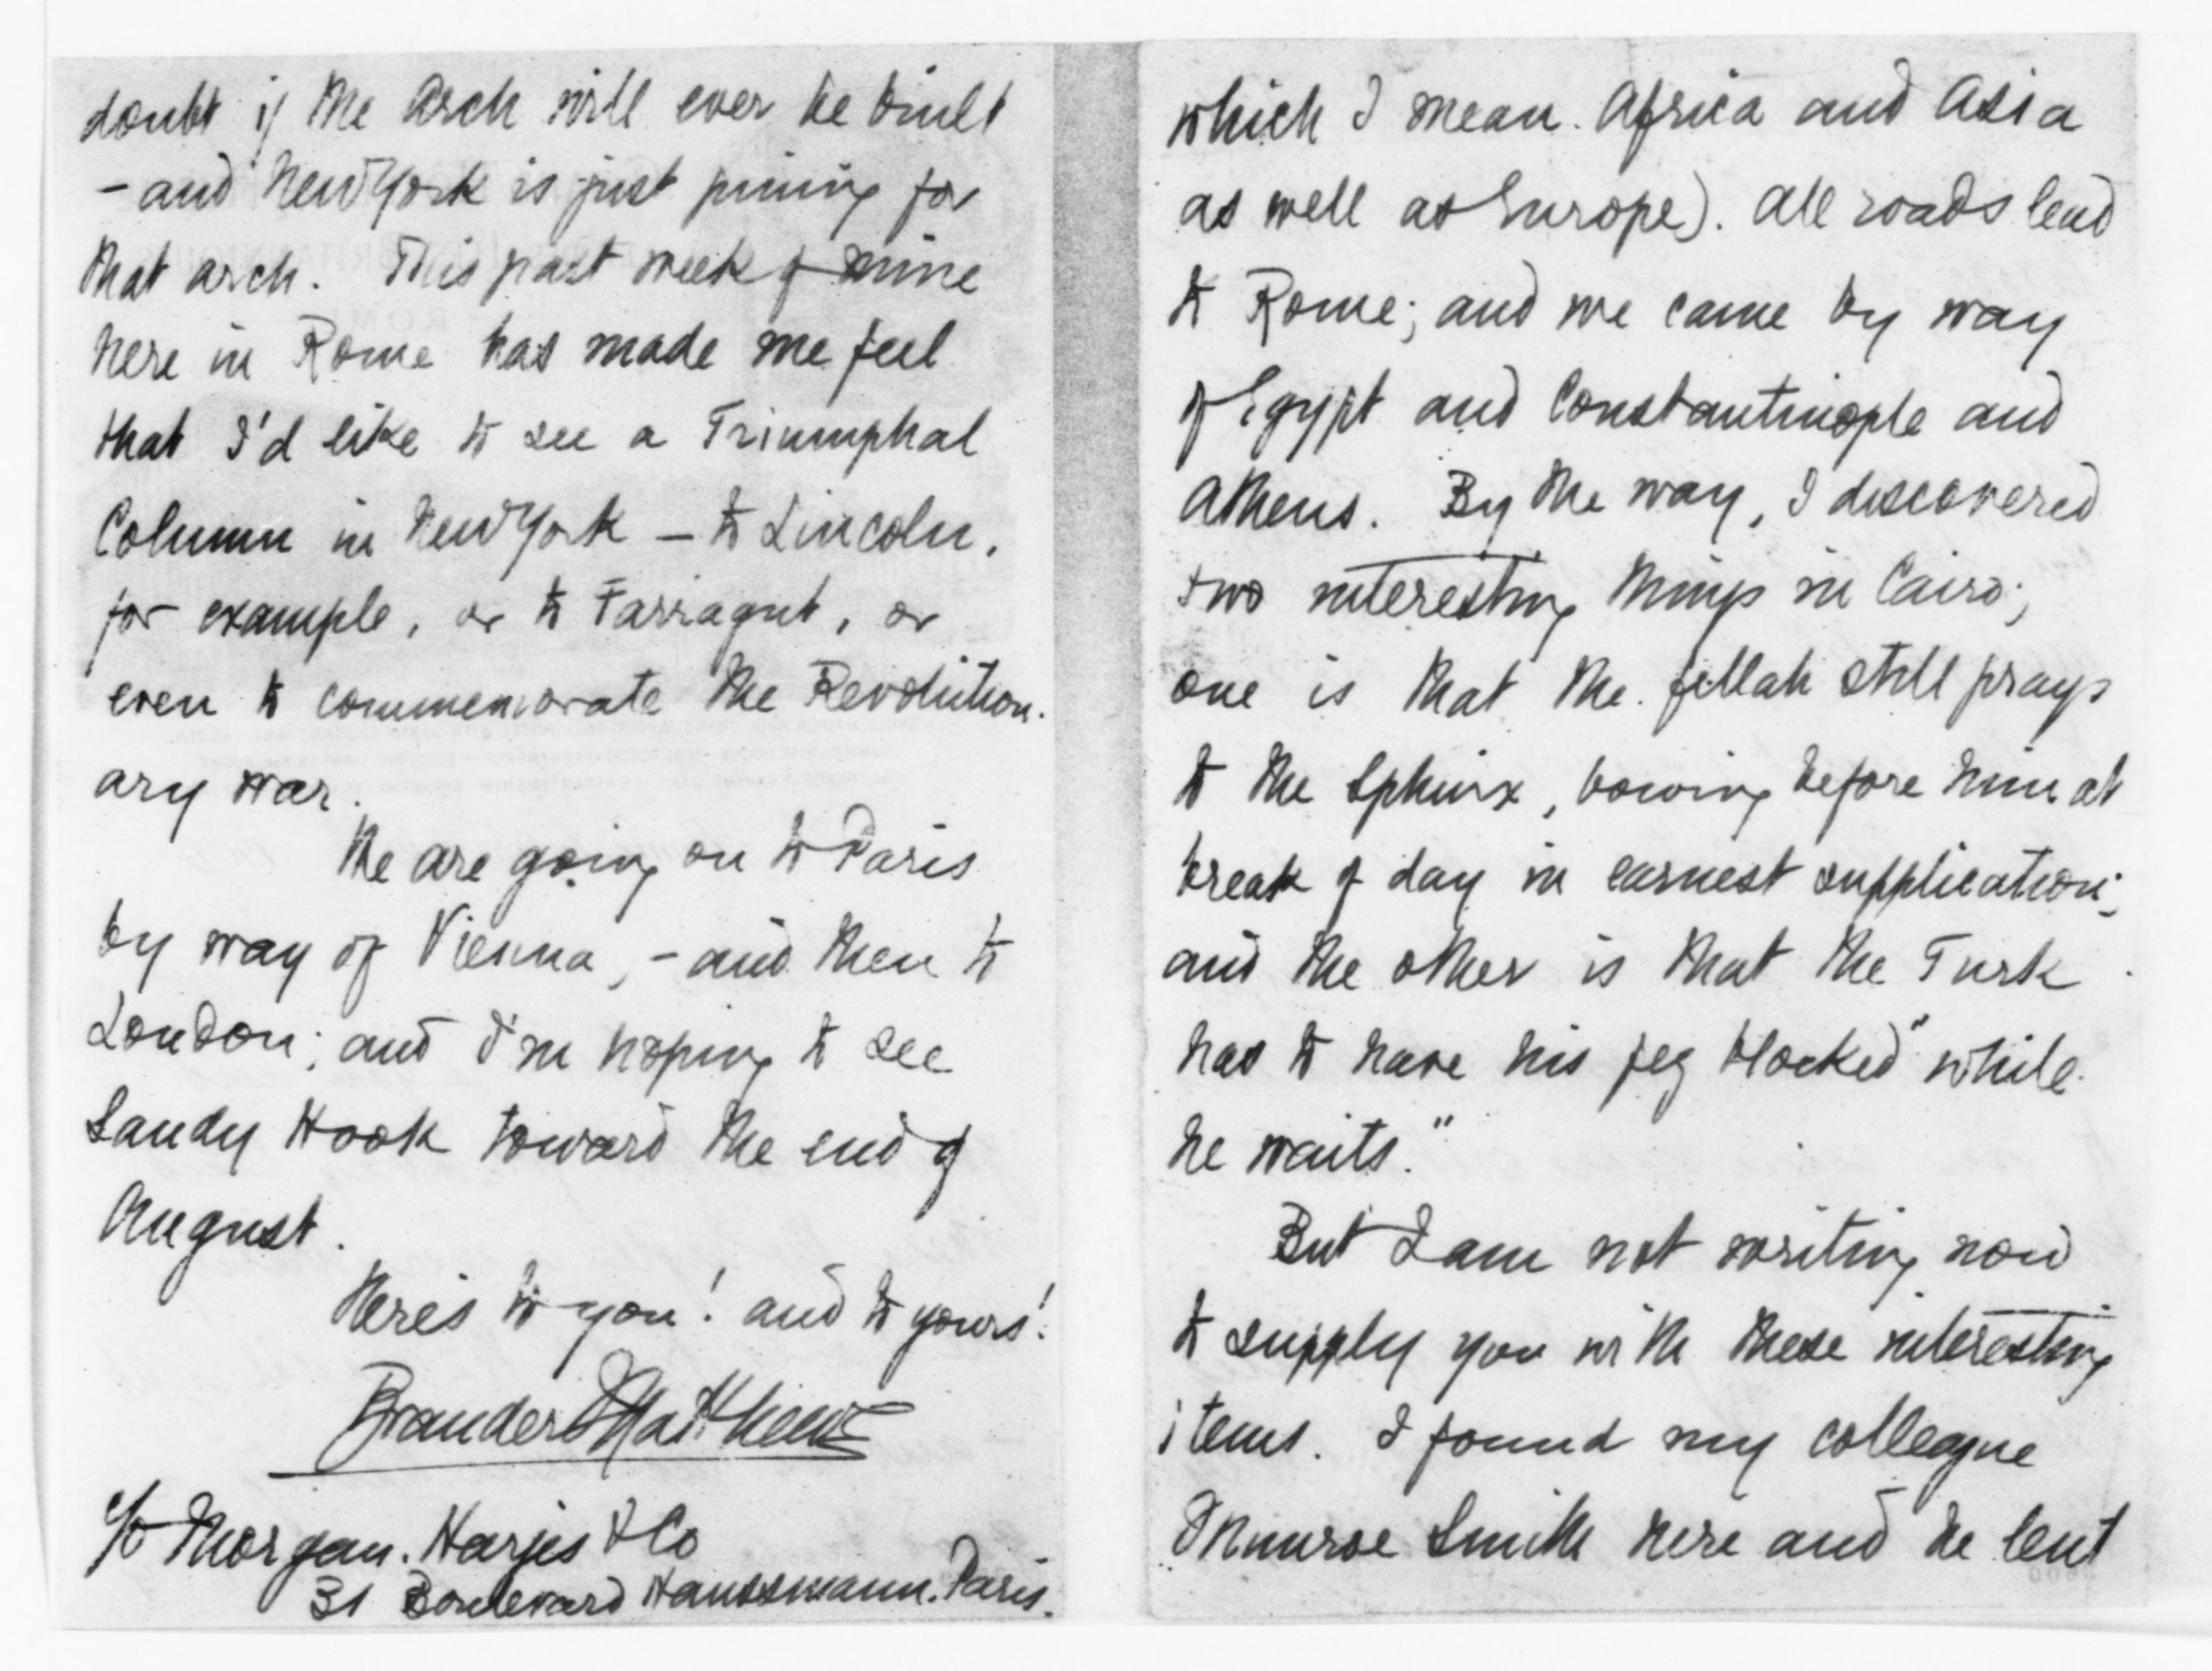 doubt if the Arch will ever be built
– and New York is just pining for
that arch. This past week of mine
here in Rome has made me feel
that I'd like to see a Triumphal
Column in New York – to Lincoln,
for example, or to Farragut, or
even to commemorate the Revolution-
ary war.
We are going on to Paris
by way of Vienna, – and then to
London; and I'm hoping to see
Sandy Hook toward the end of
August.
Here's to you! and to yours!
Brander Matthews
c/o Morgan. Harjes & Co
31 Boulevard Haussmann. Paris.
which I mean Africa and Asia
as well as Europe). All roads lead
to Rome; and we came by way
of Egypt and Constantinople and
Athens. By the way, I discovered
two interesting things in Cairo;
one is that the fellah still prays
to the Sphinx, bowing before him at
break of day in earnest supplication;
and the other is that the Turk
has to have his fez blocked "while
he waits."
But I am not writing now
to supply you with these interesting
items. I found my colleague
Munroe Smith here and he lent